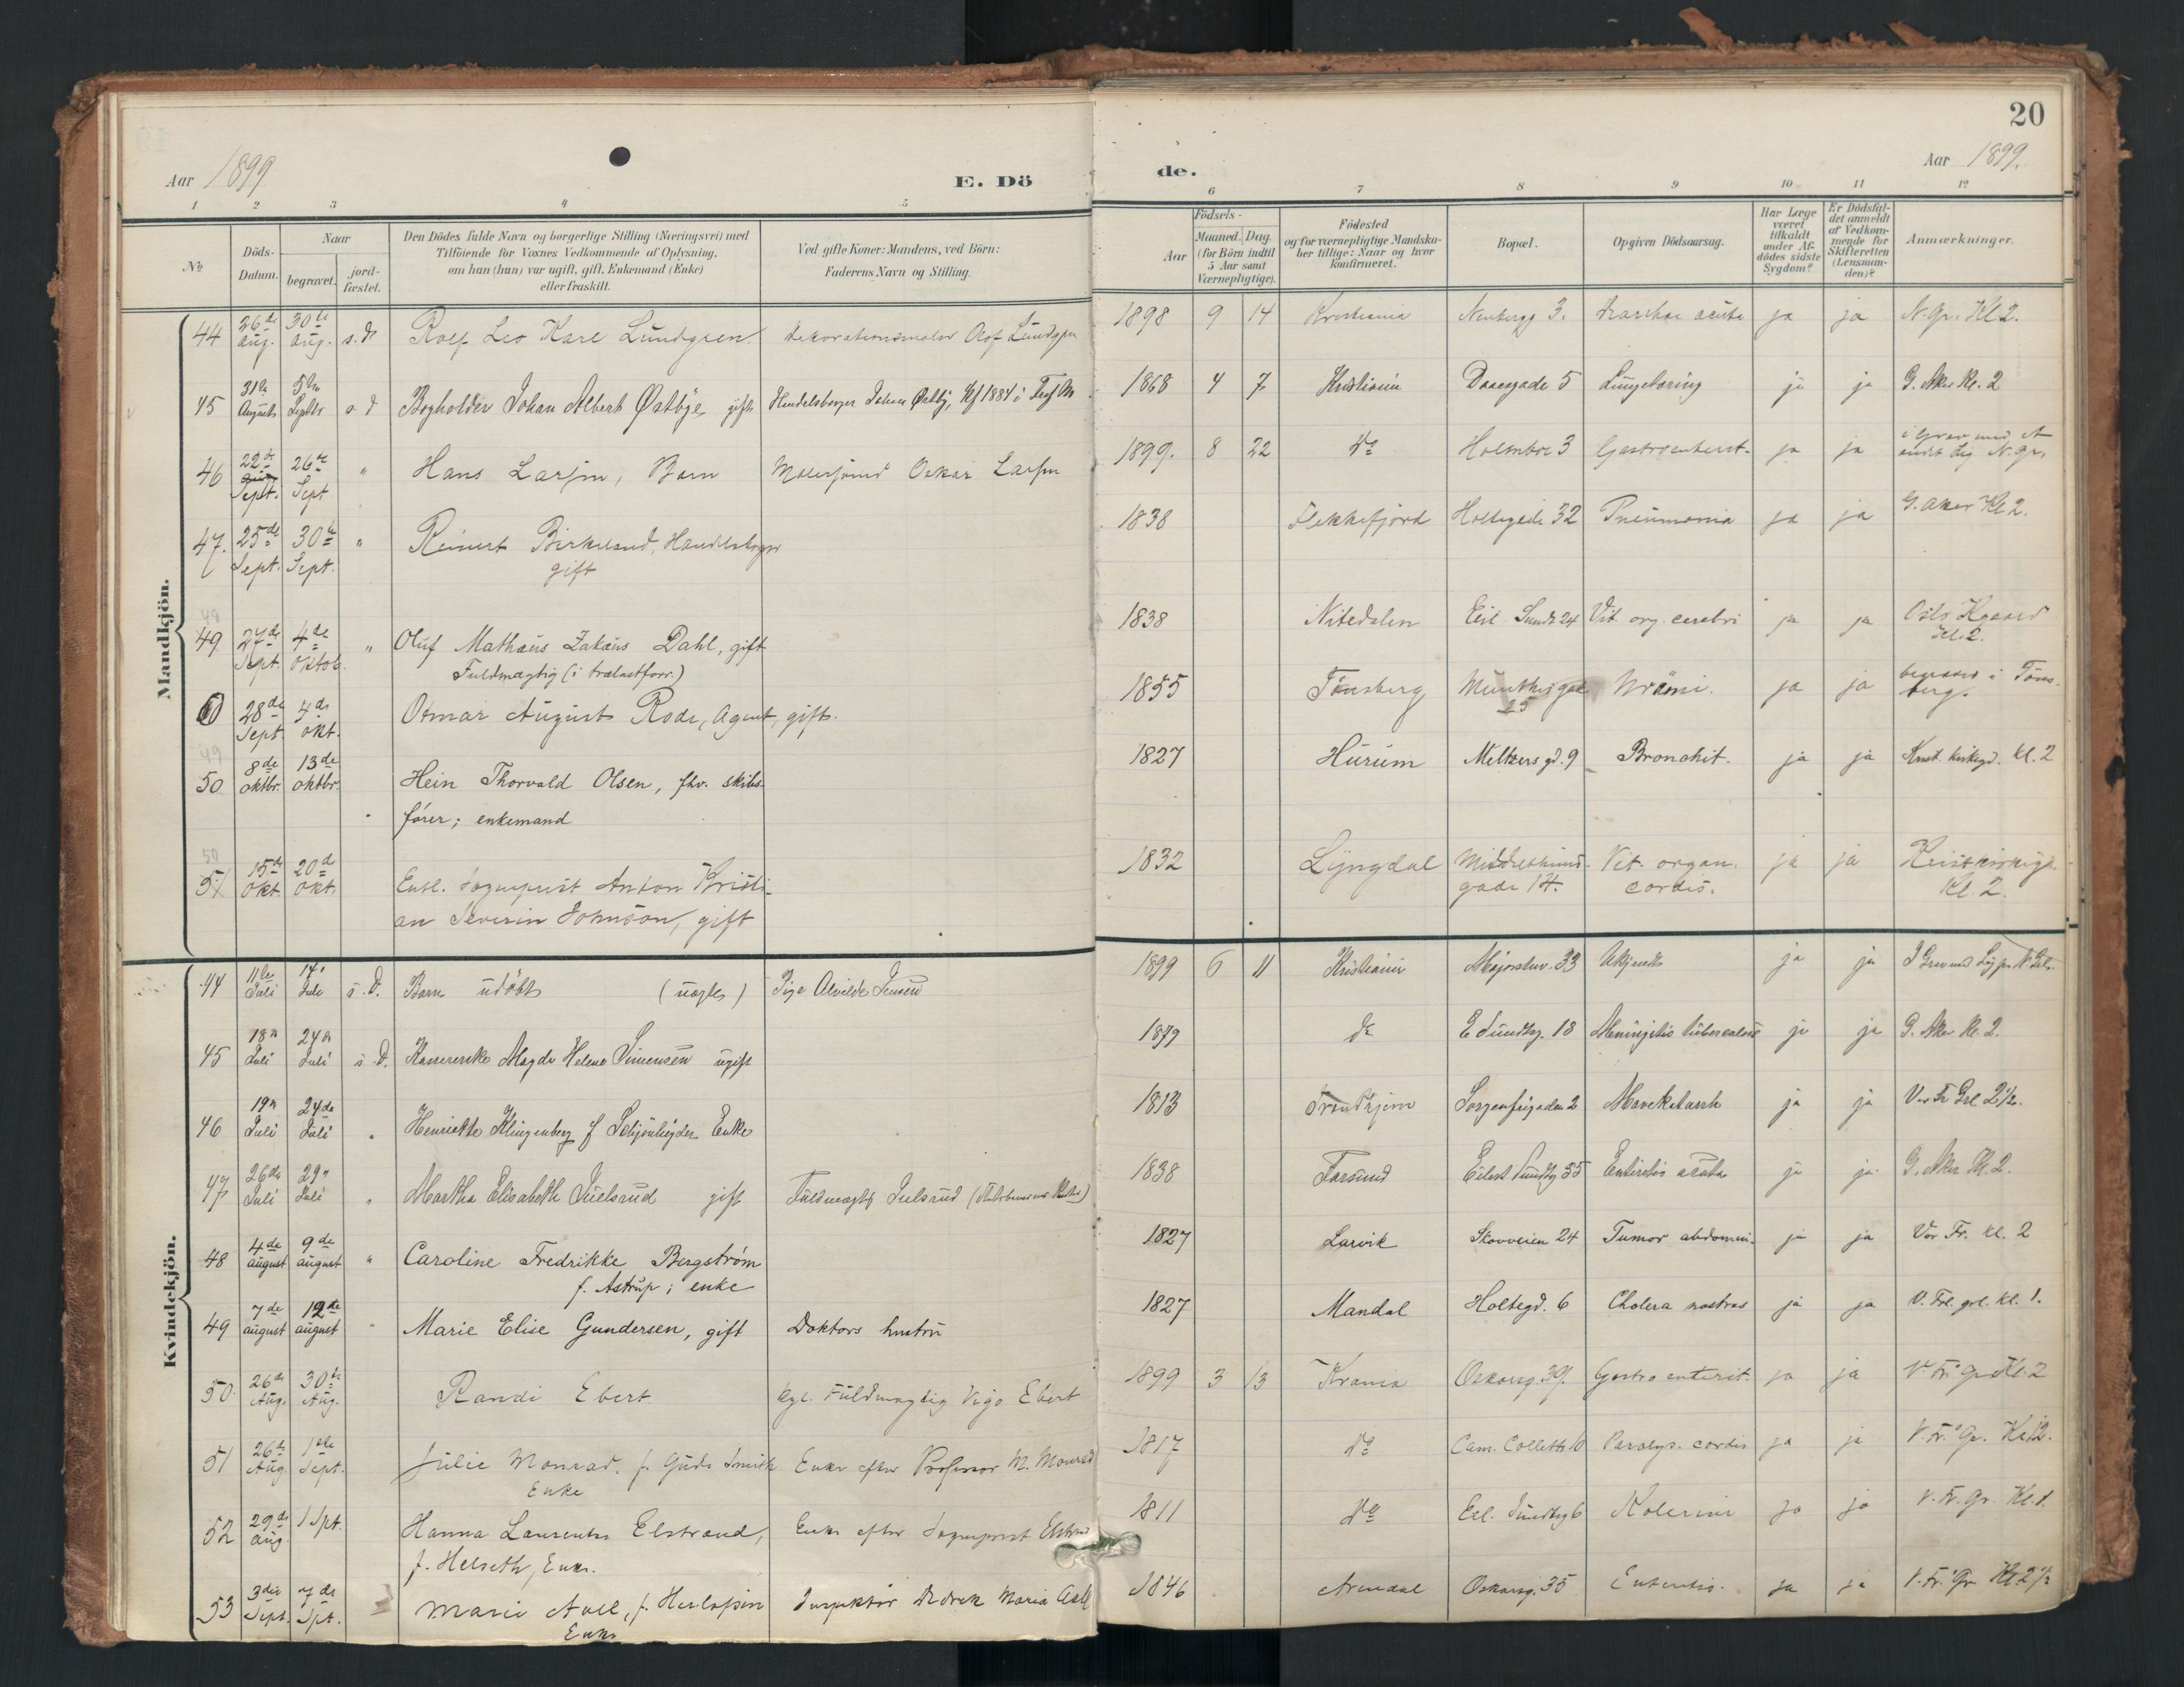 20
Aar 1899
E. Dö
de.
Aar 1899.
1 2 3 4 5 6 7 8 9 10 11 12
No
Döds-Datum.
Naar
begravet.
jord-fæstet.
Den Dödes fulde Navn og borgerlige Stilling (Næringsvei) med
Tilföiende for Voxnes Vedkommende af Oplysning,
om han (hun) var ugift, gift, Enkemand (Enke)
eller fraskilt.
Ved gifte Koner: Mandens, ved Börn:
Faderens Navn og Stilling.
Födsels-
Aar
Maaned. Dag.
(for Börn indtil
5 Aar samt
Værnepligtige).
Födested
og for værnepligtige Mandska-
ber tillige: Naar og hvor
konfirmeret.
Bopæl.
Opgiven Dödsaarsag.
Har Læge
været
tilkaldt
under Af-
dödes sidste
Sygdom?
Er Dödsfal-
det anmeldt
af Vedkom-
mende for
Skifteretten
(Lensman-
den)?
Anmærkninger.
Mandkjön.
44 26de Aug. 30te Aug. s. d. Rolf Leo Karl Lundgren. Dekorationsmaler Olof Lundgren 1898 9 14 Kristiania Neubergg 3. acuta ja ja N. Gr. Kl 2.
45 31te August 5te Septbr s d Bogholder Johan Albert Østbye gift Handelsborger Johan Østby, 1884 i 1868 4 7 Kristiania Daaesgade 5 Lungetæring ja ja G. Aker Kl. 2
46 22de Sept. 26de Sept " Hans Larsen, Barn Malersvend Oskar Larsen 1899. 8 22 do 3 Gastroenterit. ja ja i Grav med et
andet Lig N. Gr.
47. 25de Sept. 30te Sept. " Reinert Birkeland, Handelsborger
gift 1838 Flekkefjord Holtegade 32 Pneumonia ja ja G. Aker Kl 2.
48
49 27de Sept. 4de Oktob. " Oluf Mathæus Zakæus Dahl, gift
Fuldmægtig (i trælastforr.) 1838 Nitedalen Eil. Sundts 24 Vit. org. cerebri ja ja Oslo Hgaard
Kl. 2.
28de Sept 4de Okt. Otmar August Rode, Agent, gift. 1855 Tönsberg Munthesgade
25 Urämi. ja ja begravet i Töns-
berg.
49
50 8de oktbr. 13de oktbr. Hein Thorvald Olsen, fhv. skibs-
fører; enkemand 1827 Hurum Meltzers gd. 9 Bronchit. ja ja Krist. kirkegd. kl. 2
50
51 15de Okt 20de Okt. Entl. Sogneprest Anton Kristi-
an Severin Johnson, gift 1832 Lyngdal Middelthuns-
gade 14. Vit. organ.
cordis. ja ja
Kl. 2.
Kvindekjön.
44 11te Juli Juli s. D. Barn udøbt (uægte) Pige Alvilde Jensen 1899 6 11 Kristiania Majorstuv. 33 ja ja
45 18de Juli 24de Juli s. D. Kassererske Magda Helene Simensen ugift 1879 do E Sundtsg. 18 Meningitis tuberculose ja ja G. Aker Kl. 2.
46 19de Juli 24de Juli " Henriette Klingenberg f Enke 1813 Trondhjem Sorgenfrigaden 2 Mavekatarrh ja ja Vor Fr Grl 2 1/2.
47 26de Juli 29de Juli " Martha Elisabeth Juelsrud gift Fuldmægtig Juelsrud 1838 Farsund Eilert Sundtsg 35 Enteritis acuta ja ja G. Aker Kl. 2.
48 4de august 9de august " Caroline Fredrikke Bergstrøm
f. Astrup; enke 1827 Larvik Skovveien 24 Tumor abdomin. ja ja Vor Fr. kl. 2
49 7de august 12te august " Marie Elise Gundersen, gift Doktors hustru 1827 Mandal Holtegd. 6 Cholera nostras ja ja V. Fr. grl. kl. 1.
50. 26de Aug. 30te Aug. Randi Ebert kgl. Fuldmægtig Vigo Ebert 1899 3 13 Krania Oskarsg. 39. Gastro enterit. ja ja V. Fr. Gr. Kl. 2
51 26de Aug. 1ste Sept. Julie Monrad, f. Gude Smith
Enke Enke efter Professor M. Monrad 1817 do Cam. Colletts 10 Paralys. cordis ja ja
52 29de aug. 1 Spt. Hanna Laurentze Elstrand,
f. Helseth, Enke. Enke efter Sogneprest Elstrand 1811 do Eil. Sundtsg 6 Kolerine ja ja V. Fr. Gr. Kl. 1.
53 3die Sept. 7de Spt. Marie Aall, f. Herlofsen
Enke Inspektør Didrik Maria Aall 1846 Arendal Oskarsg. 35 Enteritis. ja ja V. Fr. Gr Kl. 2 1/2